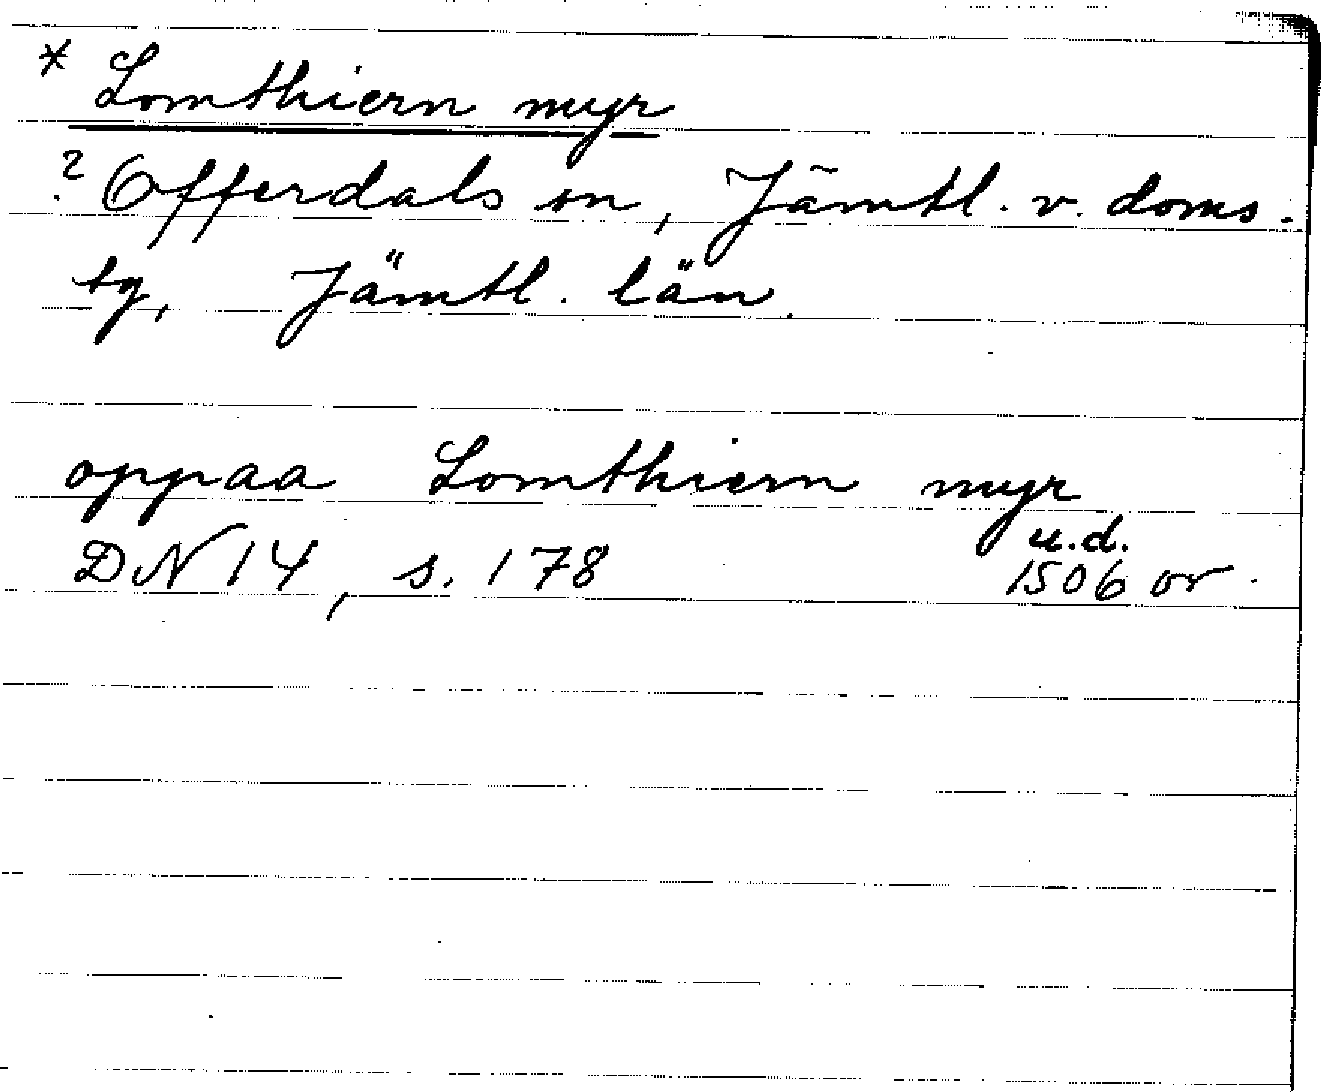 * Lomthiern myr
? Offerdals sn, Jämtl. v. doms.
tg, Jämtl. län.
oppaa Lomthiern myr
u.d.
DN 14, s. 178 1506 or.